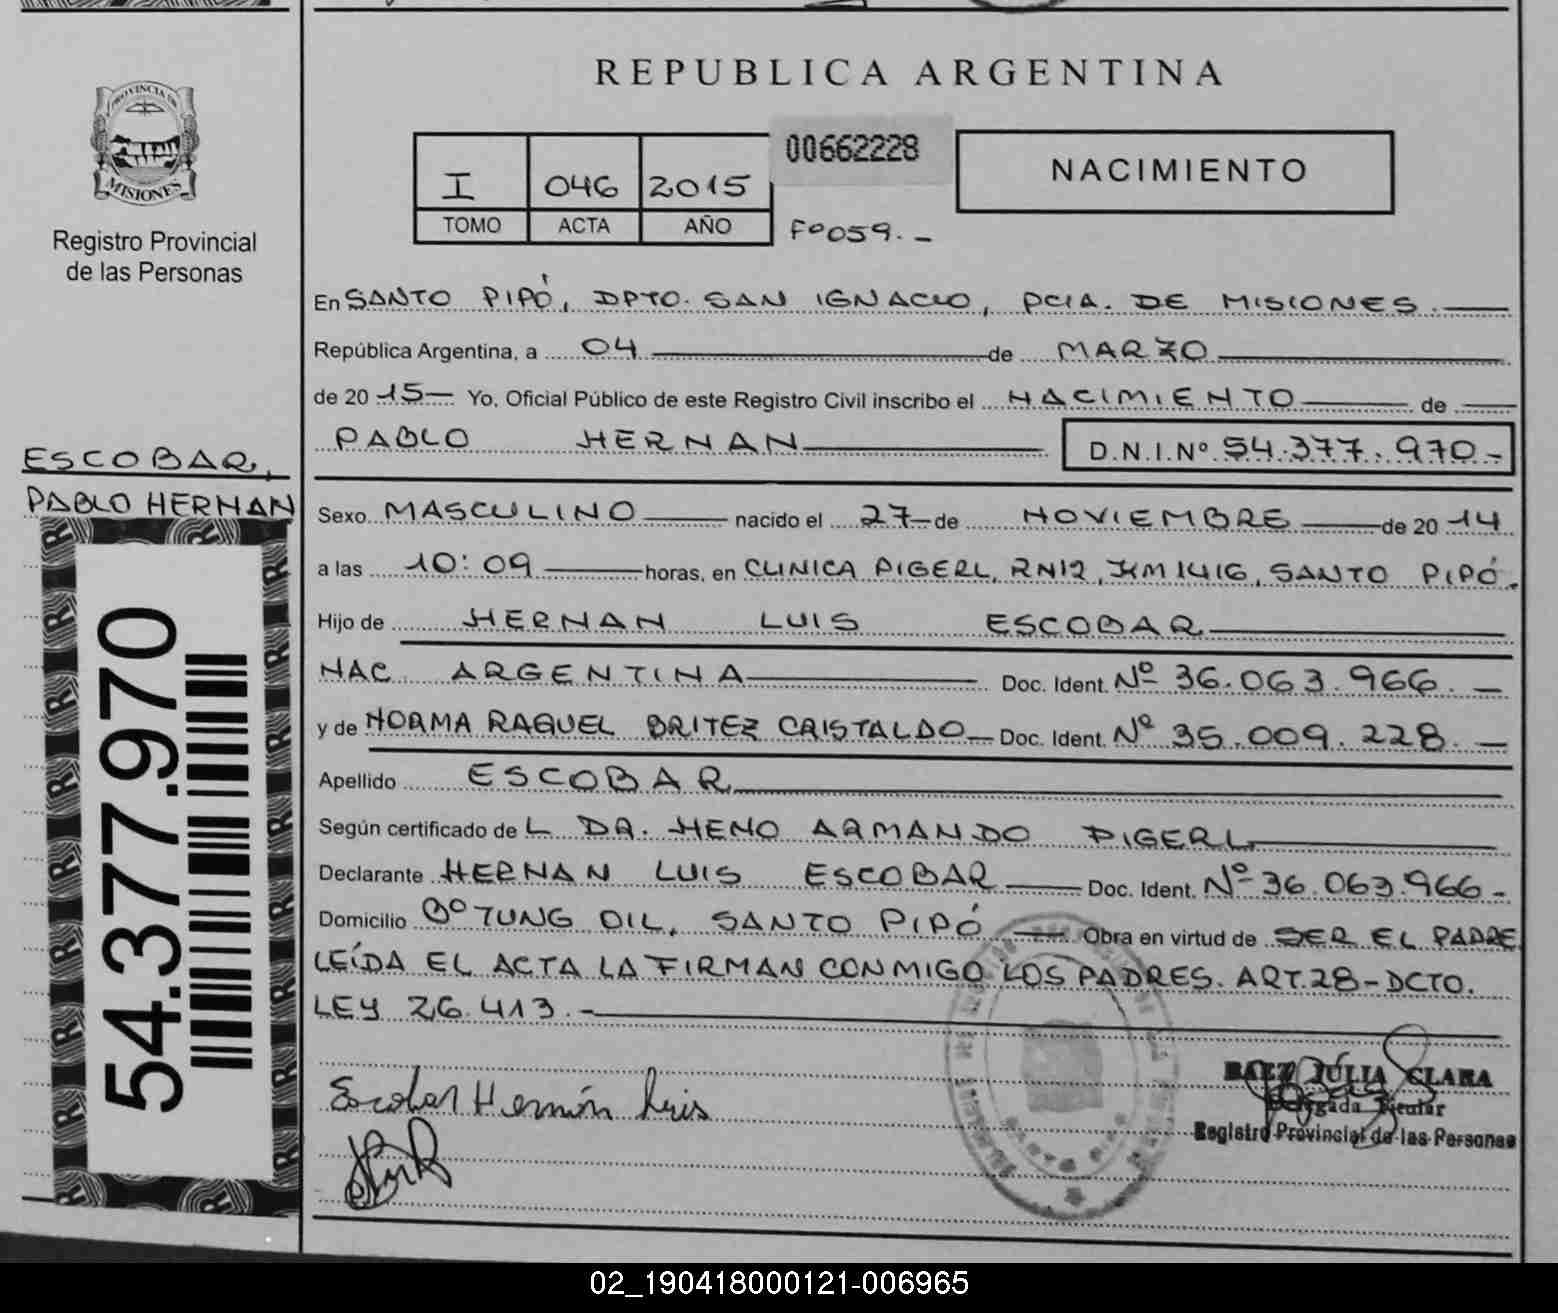 REPUBLICA ARGENTINA
PROVINCIA DE
MISIONES
Registro Provincial
de las Personas
I 046 2015
TOMO ACTA AÑO
00662228
Fº 059.-
NACIMIENTO
En SANTO PIPÓ, DPTO. SAN IGNACIO, PCIA. DE MISIONES.
República Argentina, a 04 de MARZO
de 20 15 Yo, Oficial Público de este Registro Civil inscribo el NACIMIENTO de
PABLO HERNAN D.N.I.Nº 54.377.970-
ESCOBAR,
PABLO HERNAN
54.377.970
Sexo MASCULINO nacido el 27 de NOVIEMBRE de 20 14
a las 10:09 horas, en CLINICA PIGERL, RN12, KM1416, SANTO PIPÓ.
Hijo de HERNAN LUIS ESCOBAR
NAC. ARGENTINA Doc. Ident. Nº 36.063.966.-
y de NORMA RAQUEL BRITEZ CRISTALDO Doc. Ident. Nº 35.009.228.-
Apellido ESCOBAR
Según certificado de L DR. HENO ARMANDO PIGERL
Declarante HERNAN LUIS ESCOBAR Doc. Ident. Nº 36.063.966-
Domicilio Bº TUNG OIL, SANTO PIPÓ Obra en virtud de SER EL PADRE
LEÍDA EL ACTA LA FIRMAN CONMIGO LOS PADRES. ART.28-DCTO.
LEY 26.413.-
Escobar Hernán Luis
BAEZ JULIA CLARA
Delegada Titular
Registro Provincial de las Personas
SANTO PIPO
02_190418000121-006965